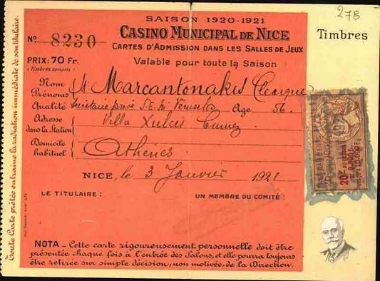 278
SAISON 1920-1921
CASINO MUNICIPAL DE NICE
No 8230
CARTES D'ADMISSION DANS LES SALLES DE JEUX
Timbres
Valable pour toute la Saison
PRIX, 70 Fr.
(Timbres compris)
Nom
Prénoms
Mr Marcantonakis George
Qualité Age 56
Adresse
dans la Station
Villa
Domicile
habituel
Athènes
NICE, le 3 Janvier 1921
LE TITULAIRE :
UN MEMBRE DU COMITÉ
NOTA - Cette carte rigoureusement personnelle doit être
présentée chaque fois à l'entrée des Salons, et elle pourra toujours
être retirée sur simple décision, non motivée, de la Direction.
Toute Carte prêtée entraîne la radiation immédiate de son titulaire.